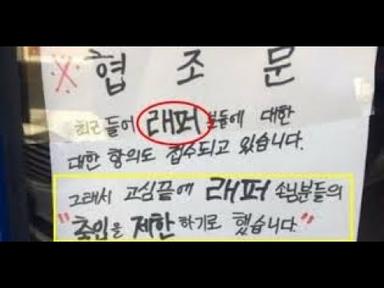 ※ 협조문
최근 들어 래퍼 분들에 대한
대한 항의도 접수되고 있습니다.
그래서 고심끝에 래퍼 손님분들의
"출입을 제한하기로 했습니다"